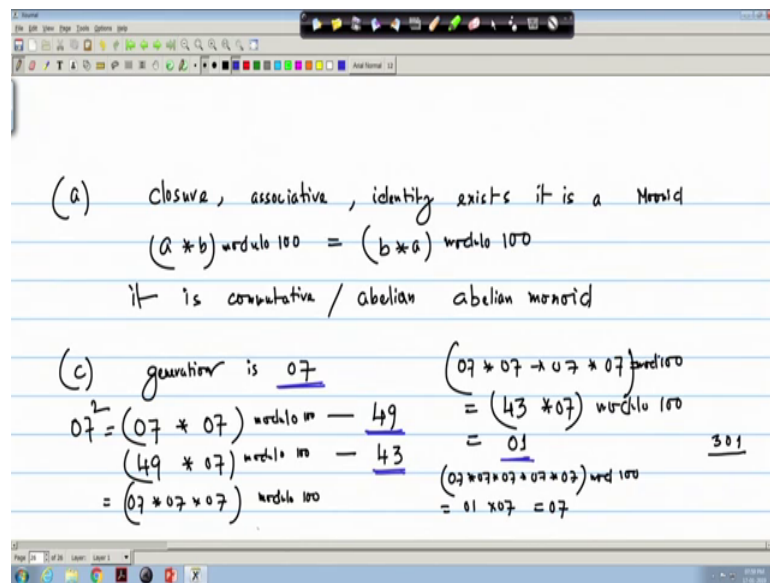 Journal
File Edit View Page Tools Options Help
Arial Normal 12
(a) closure, associative, identity exists it is a Monoid
(a * b) modulo 100 = (b * a) modulo 100
it is commutative / abelian abelian monoid
(c) generation is 07
07² = (07 * 07) modulo 100 — 49
(49 * 07) modulo 100 — 43
= (07 * 07 * 07) modulo 100
(07 * 07 * 07 * 07) mod 100
= (43 * 07) modulo 100
= 01
301
(07 * 07 * 07 * 07 * 07) mod 100
= 01 * 07 = 07
Page 26 of 26 Layer: Layer 1